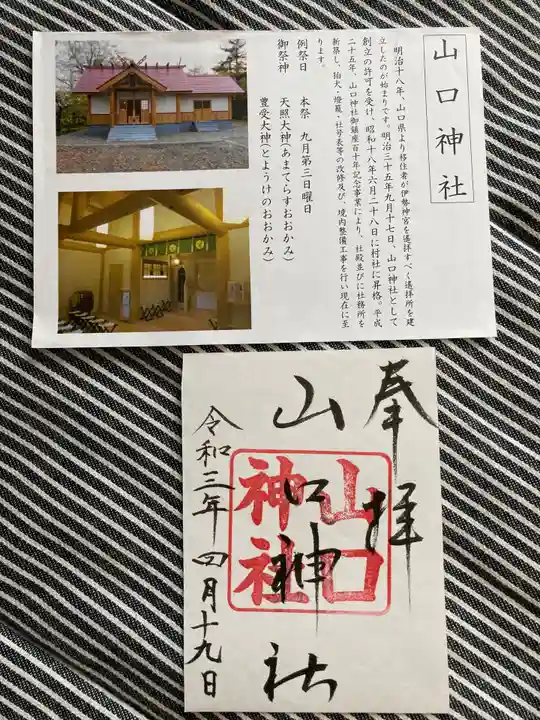 山口神社
明治十八年、山口県より移住者が伊勢神宮を遙拝すべく遙拝所を建
立したのが始まりです。明治三十五年九月十七日、山口神社として
創立の許可を受け、昭和十八年六月二十八日に村社に昇格。平成
二十五年、山口神社御鎮座百十年記念事業により、社殿並びに社務所を
新築し、狛犬・燈籠・社号表等の改修及び、境内整備工事を行い現在に至
ります。
例祭日 本祭 九月第三日曜日
御祭神 天照大神(あまてらすおおかみ)
豊受大神(とようけのおおかみ)
奉拝
山口神社
山口
神社
令和三年四月十九日